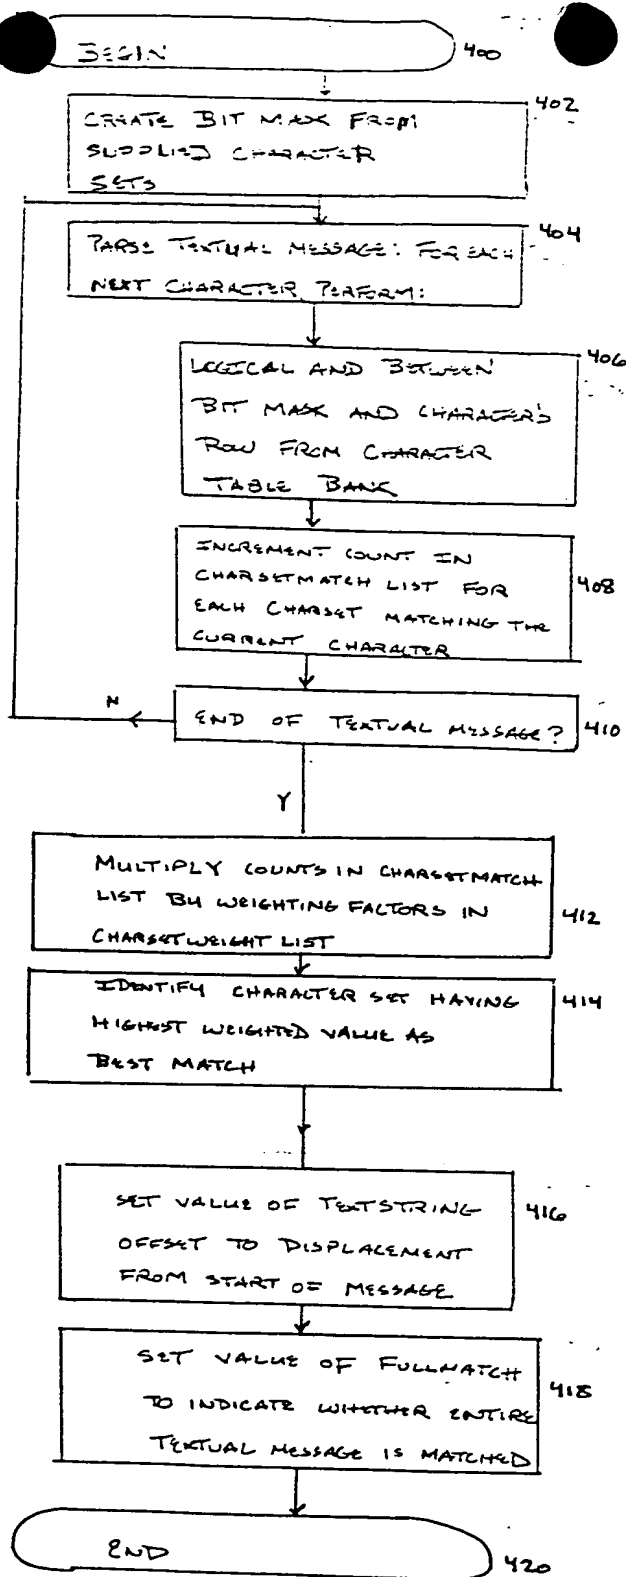 BEGIN
400
402
CREATE BIT MASK FROM
SUPPLIED CHARACTER
SETS
404
PARSE TEXTUAL MESSAGE: FOR EACH
NEXT CHARACTER PERFORM:
406
LOGICAL AND BETWEEN
BIT MASK AND CHARACTER'S
ROW FROM CHARACTER
TABLE BANK
INCREMENT COUNT IN
CHARSETMATCH LIST FOR
408
EACH CHARSET MATCHING THE
CURRENT CHARACTER
N
END OF TEXTUAL MESSAGE?
410
Y
MULTIPLY COUNTS IN CHARSETMATCH
LIST BY WEIGHTING FACTORS IN
412
CHARSETWEIGHT LIST
IDENTIFY CHARACTER SET HAVING
414
HIGHEST WEIGHTED VALUE AS
BEST MATCH
SET VALUE OF TEXTSTRING
416
OFFSET TO DISPLACEMENT
FROM START OF MESSAGE
SET VALUE OF FULLMATCH
418
TO INDICATE WHETHER ENTIRE
TEXTUAL MESSAGE IS MATCHED
END
420